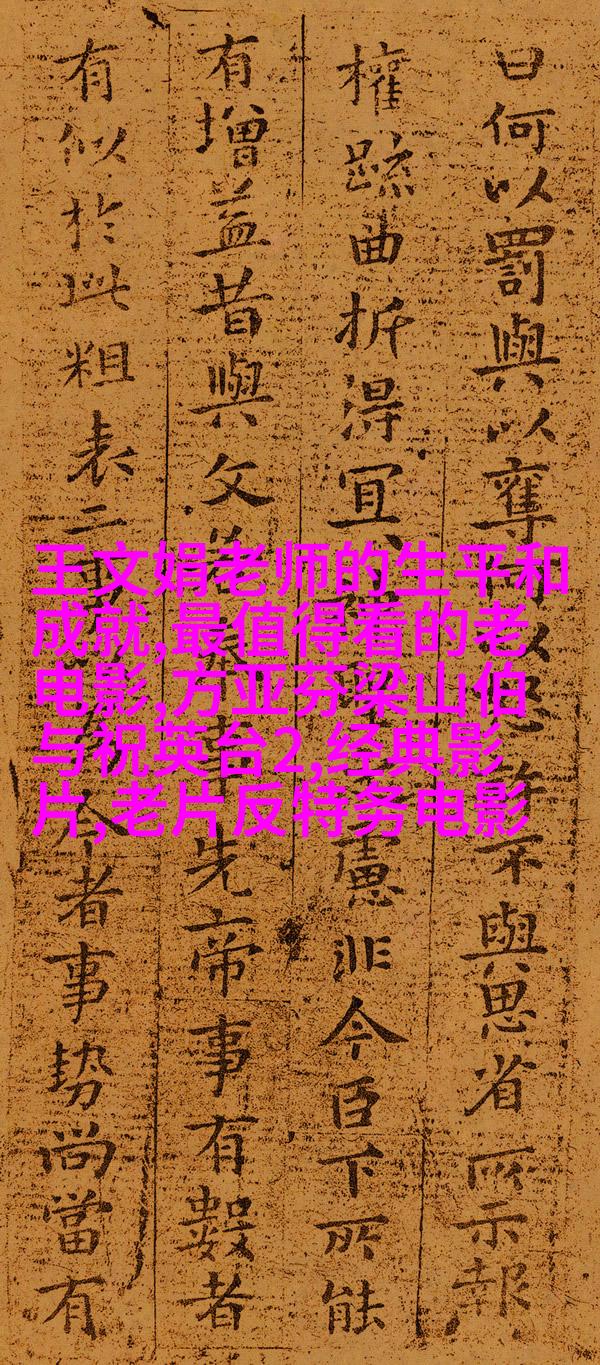 曰何以罰與以奪不與思省所示報
權踈曲折得冝慮非今臣下所能
有增益昔與文先帝事有數者
有似於此粗表二今者事勢尚當有
王文娟老师的生平和
成就,最值得看的老
电影,方亚芬梁山伯
与祝英台2,经典影
片,老片反特务电影